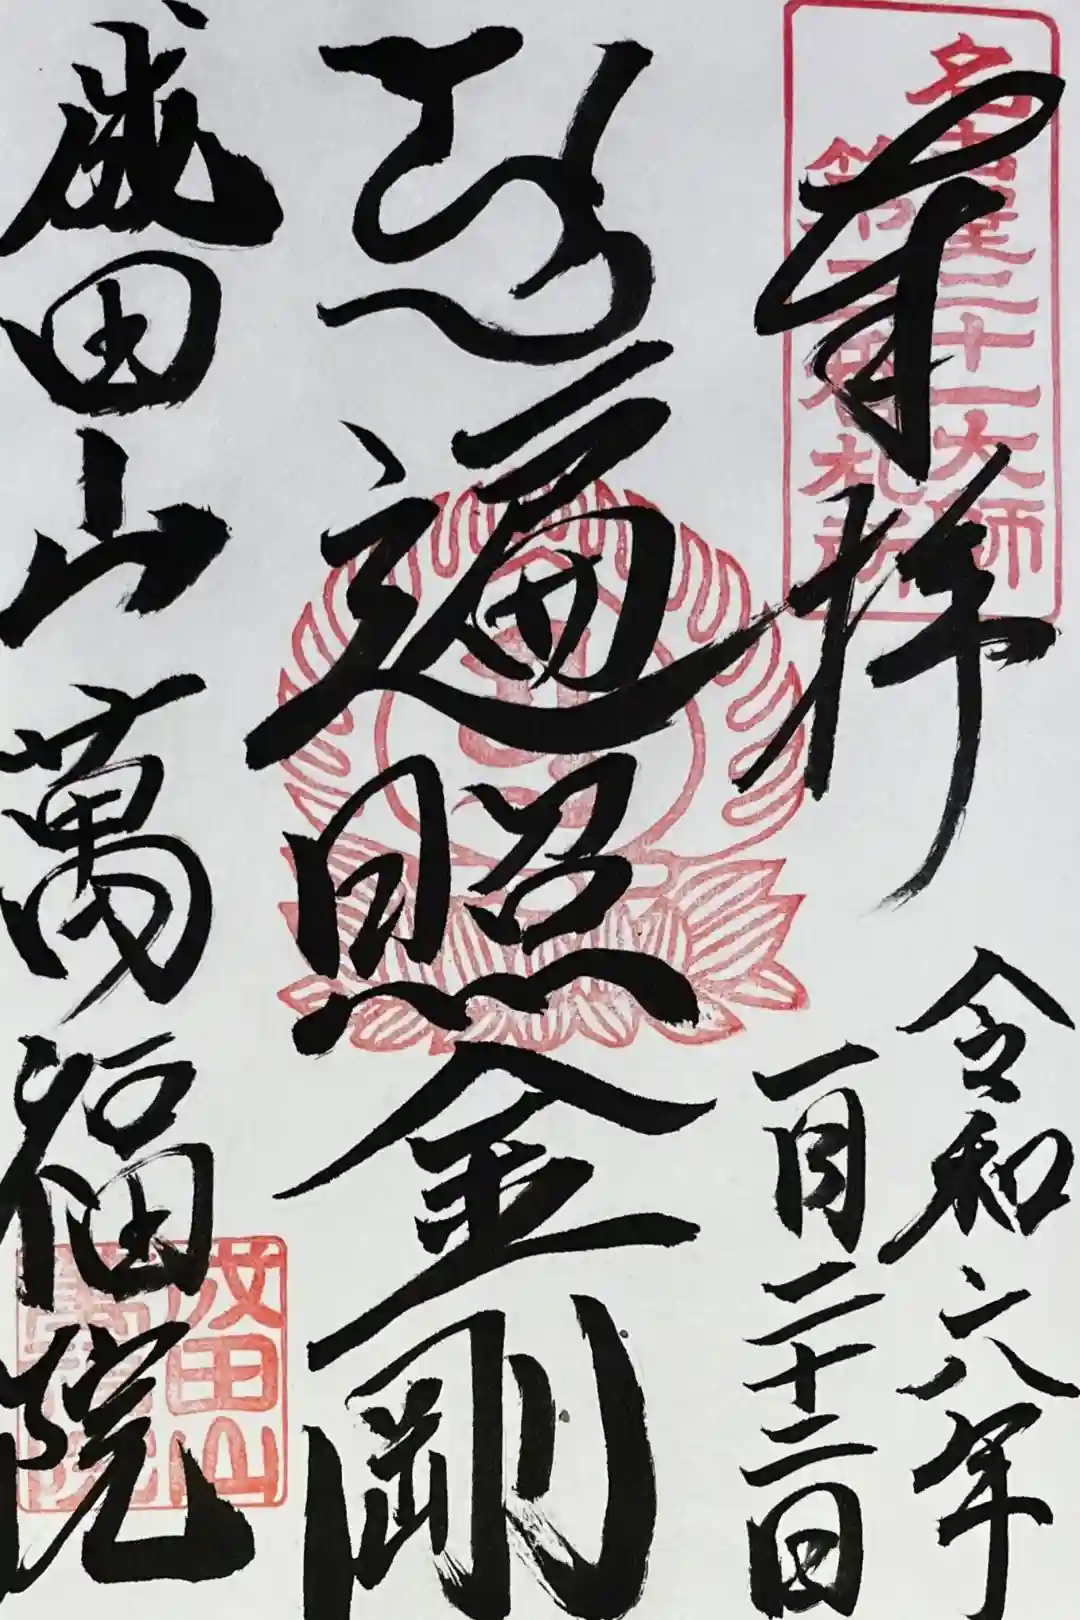 奉拝
名古屋二十一大師
第二番札所
令和六年
一月二十二日
遍照金剛
成田山
萬福院
成田山
萬福院